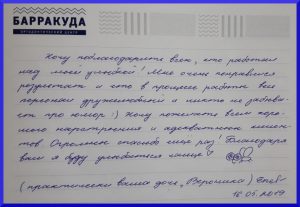 БАРРАКУДА
ОРТОДОНТИЧЕСКИЙ ЦЕНТР
Хочу поблагодарить всех, кто работал
над моей улыбкой! Мне очень понравился
результат и что в процессе работы весь
персонал дружелюбный и никто не забыва-
ет про юмор :) Хочу пожелать всем хоро-
шего настроения и адекватных клиен-
тов. Огромное спасибо ещё раз! Благодаря
вам я буду улыбаться чаще!
(практически ваша дочь, Вероника)
18.05.2019